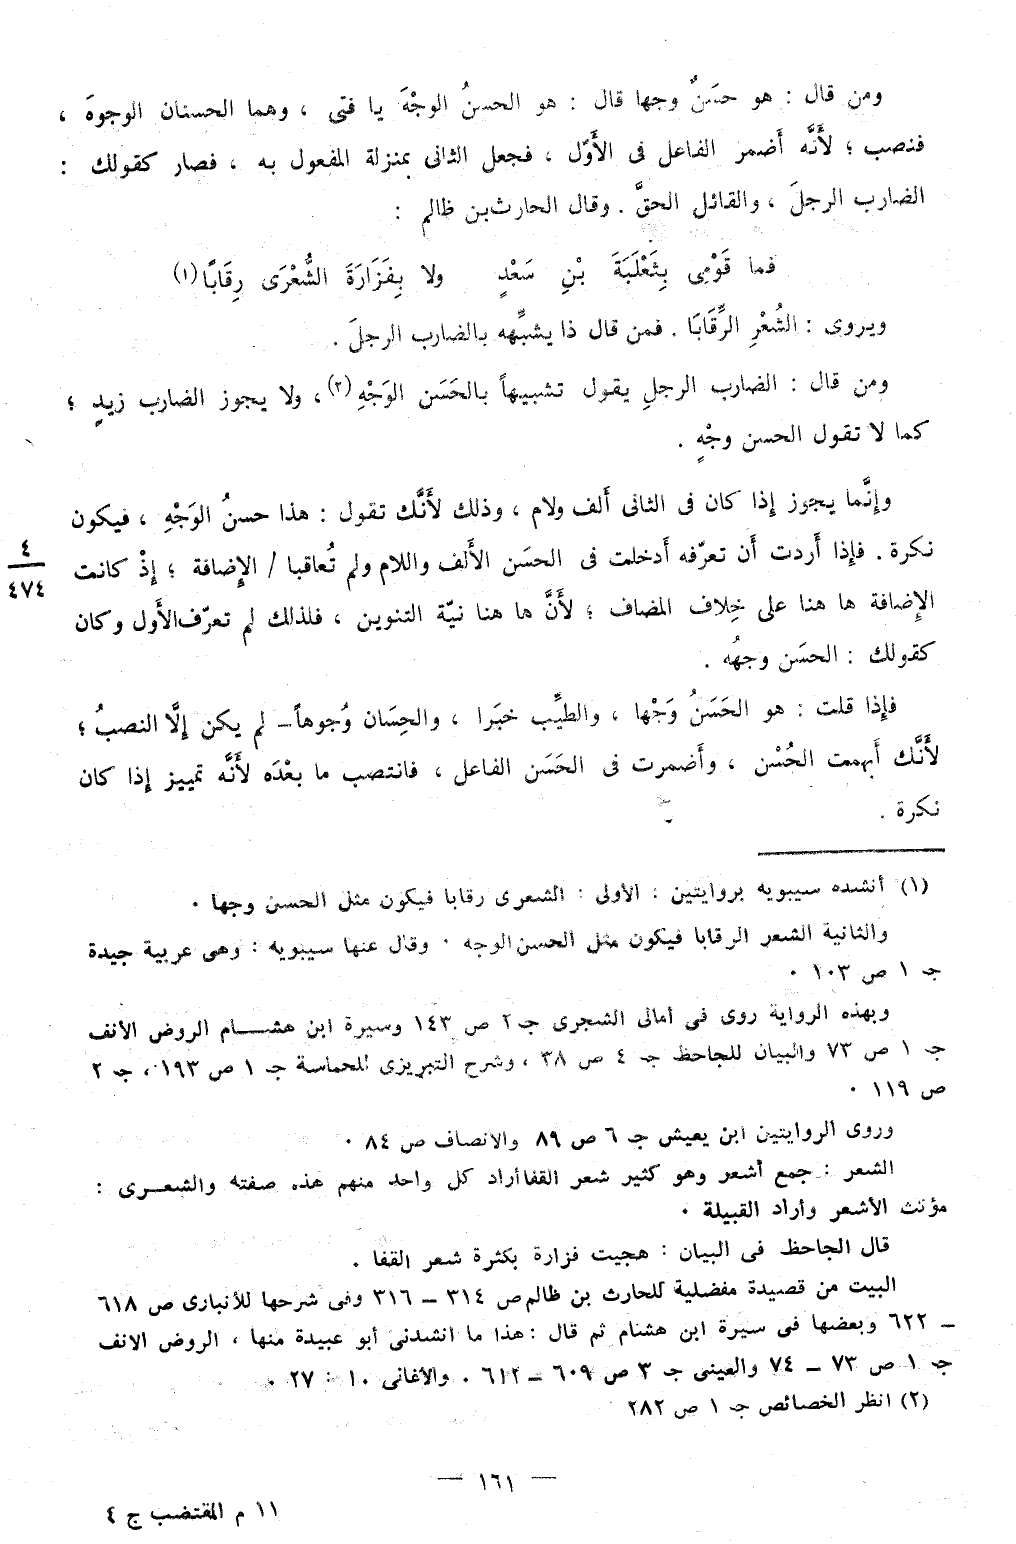 ومن قال : هو حسَنٌ وجها قال : هو الحسنُ الوجْهَ يا فتى ، وهما الحسنان الوجوهَ ،
فنصب ؛ لأَنَّه أَضمر الفاعل فى الأَوّل ، فجعل الثانى بمنزلة المفعول به ، فصار كقولك :
الضارب الرجلَ ، والقائل الحقَّ . وقال الحارث بن ظالم :
فما قَوْمِى بِثَعْلَبَةَ بْنِ سَعْدٍ ولا بِفَزَارَةَ الشُّعْرَى رِقَابًا (١)
ويروى : الشُعْرِ الرِّقَابَا . فمن قال ذا يشبِّهه بالضارب الرجلَ .
ومن قال : الضارب الرجلِ يقول تشبيهاً بالحَسَن الوَجْهِ (٢) ، ولا يجوز الضارب زيدٍ ؛
كما لا تقول الحسن وجْهٍ .
وإِنَّما يجوز إذا كان فى الثانى أَلف ولام ، وذلك لأَنَّك تقول : هذا حسنُ الوَجْهِ ، فيكون
نكرة . فإِذا أَردت أَن تعرّفه أَدخلت فى الحسَن الأَلف واللام ولم تُعاقبا / الإِضافة ؛ إِذْ كانت
٤
٤٧٤
الإِضافة ها هنا على خِلاف المضاف ؛ لأَنَّ ها هنا نيّة التنوين ، فلذلك لم تعرّف الأَول وكان
كقولك : الحسَن وجهُه .
فإِذا قلت : هو الحَسَنُ وَجْها ، والطيِّب خبَرا ، والحِسَان وُجوهاً – لم يكن إِلَّا النصبُ ؛
لأَنَّك أَبهمت الحُسْن ، وأَضمرت فى الحَسَن الفاعل ، فانتصب ما بعْدَه لأَنَّه تمييز إِذا كان
نكرة .
(١) أنشده سيبويه بروايتين : الأولى : الشعرى رقابا فيكون مثل الحسن وجها .
والثانية الشعر الرقابا فيكون مثل الحسن الوجه . وقال عنها سيبويه : وهى عربية جيدة
جـ ١ ص ١٠٣ .
وبهذه الرواية روى فى أمالى الشجرى جـ٢ ص ١٤٣ وسيرة ابن هشـــام الروض الأنف
جـ ١ ص ٧٣ والبيان للجاحظ جـ ٤ ص ٣٨ ، وشرح التبريزى للحماسة جـ ١ ص ١٩٣ ، جـ ٢
ص ١١٩ .
وروى الروايتين ابن يعيش جـ ٦ ص ٨٩ والانصاف ص ٨٤ .
الشعر : جمع أشعر وهو كثير شعر القفا أراد كل واحد منهم هذه صفته والشعـــرى :
مؤنث الأشعر وأراد القبيلة .
قال الجاحظ فى البيان : هجيت فزارة بكثرة شعر القفا .
البيت من قصيدة مفضلية للحارث بن ظالم ص ٣١٤ – ٣١٦ وفى شرحها للأنبارى ص ٦١٨
– ٦٢٢ وبعضها فى سيرة ابن هشام ثم قال : هذا ما أنشدنى أبو عبيدة منها ، الروض الانف
جـ ١ ص ٧٣ – ٧٤ والعينى جـ ٣ ص ٦٠٩ – ٦١٢ . والأغانى ١٠ : ٢٧ .
(٢) انظر الخصائص جـ ١ ص ٢٨٢
— ١٦١ —
١١ م المقتضب ج ٤